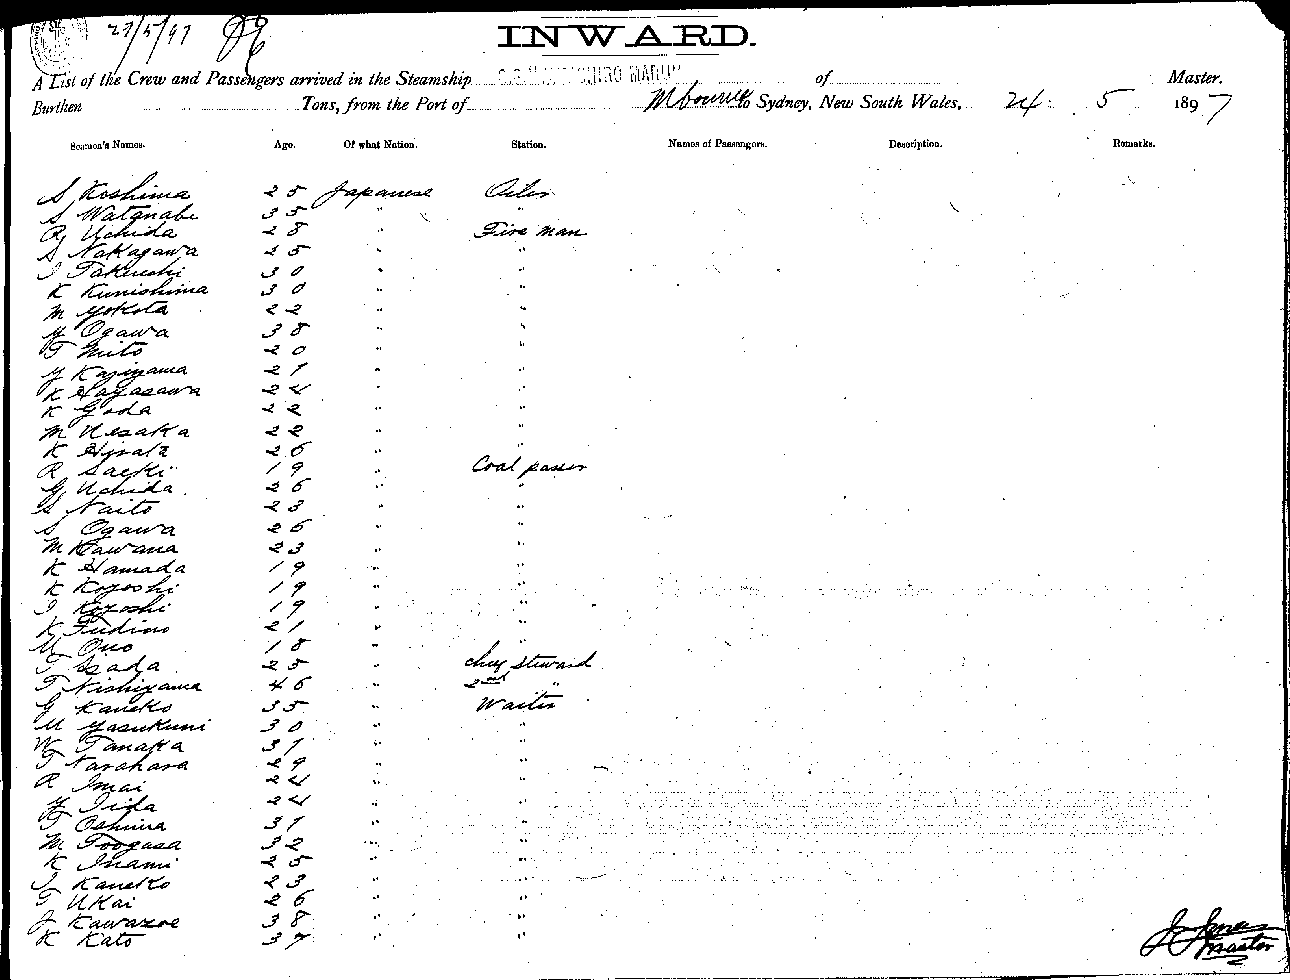 27/5/97
INWARD.
A List of the Crew and Passengers arrived in the Steamship MARU of Master.
Burthen Tons, from the Port of Mbourne to Sydney, New South Wales, 24 5 1897
Seamen's Names. Age. Of what Nation. Station. Names of Passengers. Description. Remarks.
S Koshima 25 Japanese Oiler
S Watanabe 35 " "
R Uchida 28 " Fire man
S Nakagawa 25 " "
I Takeuchi 30 " "
K Kunishima 30 " "
M Yokota 22 " "
Y Ogawa 38 " "
T Mito 20 " "
Y Kajiyama 21 " "
K Hayasawa 24 " "
K Goda 22 " "
M Uesaka 22 " "
K Hirata 26 " "
R Saeki 19 " Coal passer
G Uchida 26 " "
S Naito 23 " "
S Ogawa 26 " "
M Kawana 23 " "
K Hamada 19 " "
K Koyoshi 19 " "
I Koyoshi 19 " "
K Fudino 21 " "
M Ono 18 " "
T Isada 25 " Chief steward
T Nishiyama 46 " 2nd "
G Kaneko 35 " Waiter
M Yasukuni 30 " "
W Tanaka 31 " "
T Narahara 29 " "
R Imai 24 " "
Y Iida 24 " "
T Oshima 31 " "
M Toogasa 32 " "
K Inami 25 " "
I Kaneko 23 " "
T Ukai 26 " "
J Kawazoe 38 " "
K Kato 37 " "
J Jones
Master